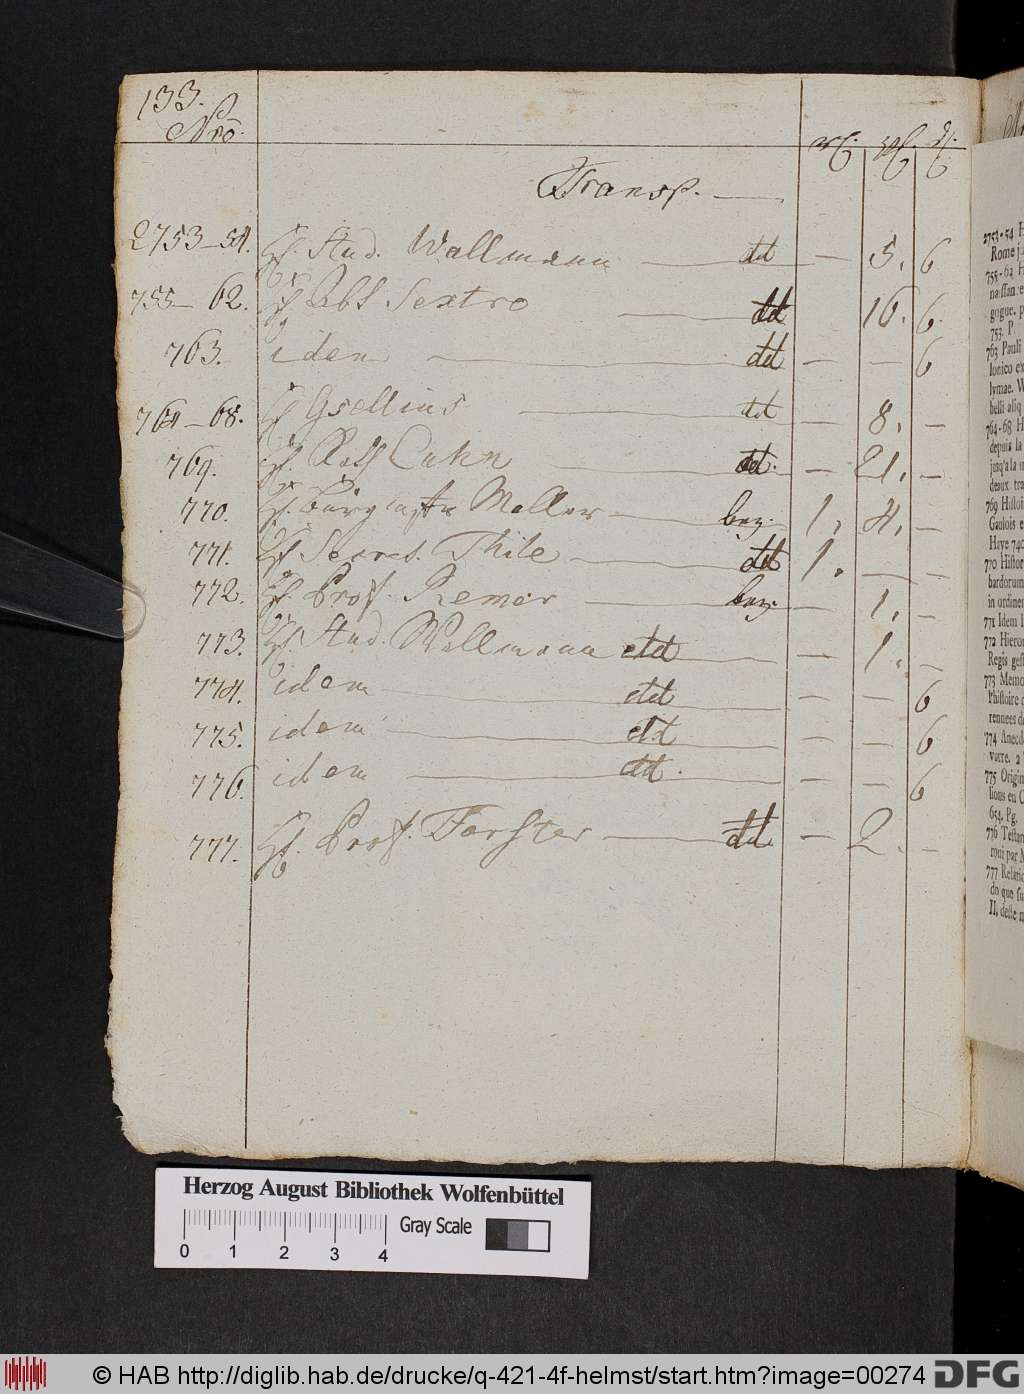 133.
Nro.
Transp.
2753-54. H. Stud. Wallmann dd — 5. 6
755-62. H. Abt Sextro dd 16. 6.
763. idem dd — — 6
764-68. H. Gsellius dd — 8. —
769. H. Cahn dd. — 21. —
770. H. Möller bez. 1. 4. —
771. H. Secret. Thile dd 1. — —
772. H. Prof. Remer bez. — 1. —
773. H. Stud. Wallmann dd — 1. —
774. idem dd — — 6
775. idem dd — — 6
776. idem dd. — — 6
777. H. Prof. Forster dd — 2. —
2753-54 H
Rome
755-62 H
naissan
gogue, p
753. P.
763 Pauli
lonico ex
lymae. W
belli aliq
764-68 H
depuis la
jusqu'a la
deaux tra
769 Histoi
Gaulois e
Haye 740
770 Histor
bardorum
in ordinem
771 Idem
772 Hiero
Regis gest
773 Memo
l'histoire
rennees d
774 Anecd
varre. 2
775 Origin
lions en C
654. Pg.
776 Testam
roni par
777 Relati
do que su
II, desse
Herzog August Bibliothek Wolfenbüttel
Gray Scale
0 1 2 3 4
© HAB http://diglib.hab.de/drucke/q-421-4f-helmst/start.htm?image=00274
DFG